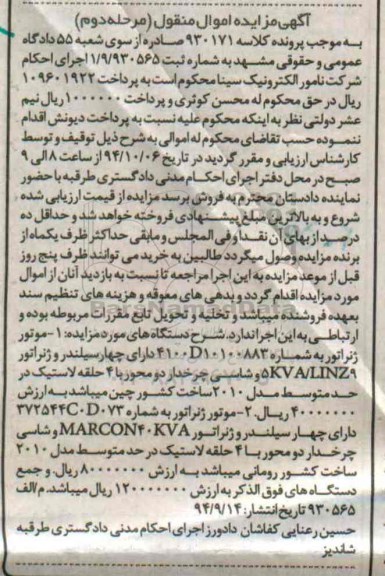 آگهی مزایده اموال منقول (مرحله دوم)
به موجب پرونده کلاسه ۹۳۰۱۷۱ صادره از سوی شعبه ۵۵ دادگاه
عمومی و حقوقی مشهد به شماره ثبت ۱/۹/۹۳۰۵۶۵ اجرای احکام
شرکت نامور الکترونیک سینا محکوم است به پرداخت ۱۰۹۶۰۱۹۲۲
ریال در حق محکوم له محسن کوثری و پرداخت ۱۰۰۰۰۰۰ ریال نیم
عشر دولتی نظر به اینکه محکوم علیه نسبت به پرداخت دیونش اقدام
ننموده حسب تقاضای محکوم له اموالی به شرح ذیل توقیف و توسط
کارشناس ارزیابی و مقرر گردید در تاریخ ۹۴/۱۰/۰۶ از ساعت ۸ الی ۹
صبح در محل دفتر اجرای احکام مدنی دادگستری طرقبه با حضور
نماینده دادستان محترم به فروش برسد مزایده از قیمت ارزیابی شده
شروع و به بالاترین مبلغ پیشنهادی فروخته خواهد شد و حداقل ده
درصد از بهای آن نقدا و فی المجلس و مابقی حداکثر ظرف یکماه از
برنده مزایده وصول میگردد طالبین به خرید می توانند ظرف پنج روز
قبل از موعد مزایده به این اجرا مراجعه تا نسبت به بازدید آنان از اموال
مورد مزایده اقدام گردد و بدهی های معوقه و هزینه های تنظیم سند
بعهده فروشنده میباشد و تخلیه و تحویل تابع مقررات مربوطه بوده و
ارتباطی به این اجرا ندارد. شرح دستگاه های مورد مزایده: ۱-موتور
ژنراتور به شماره ۴۱۰۰D۱۰۱۰۰۸۸۳ دارای چهار سیلندر و ژنراتور
۵KVA/LINZ۹ و شاسی چرخدار دو محور با ۴ حلقه لاستیک در
حد متوسط مدل ۲۰۱۰ ساخت کشور چین میباشد به ارزش
۴۰۰۰۰۰۰۰ ریال. ۲- موتور ژنراتور به شماره ۳۷۲۵۴۴C۰D۰۷۳
دارای چهار سیلندر و ژنراتور MARCON۴۰KVA و شاسی
چرخدار دو محور با ۴ حلقه لاستیک در حد متوسط مدل ۲۰۱۰
ساخت کشور رومانی میباشد به ارزش ۸۰۰۰۰۰۰۰ ریال. و جمع
دستگاه های فوق الذکر به ارزش ۱۲۰۰۰۰۰۰۰ ریال میباشد. م/الف
۹۳۰۵۶۵ تاریخ انتشار: ۹۴/۹/۱۴
حسین رعنایی کفاشان دادورز اجرای احکام مدنی دادگستری طرقبه
شاندیز